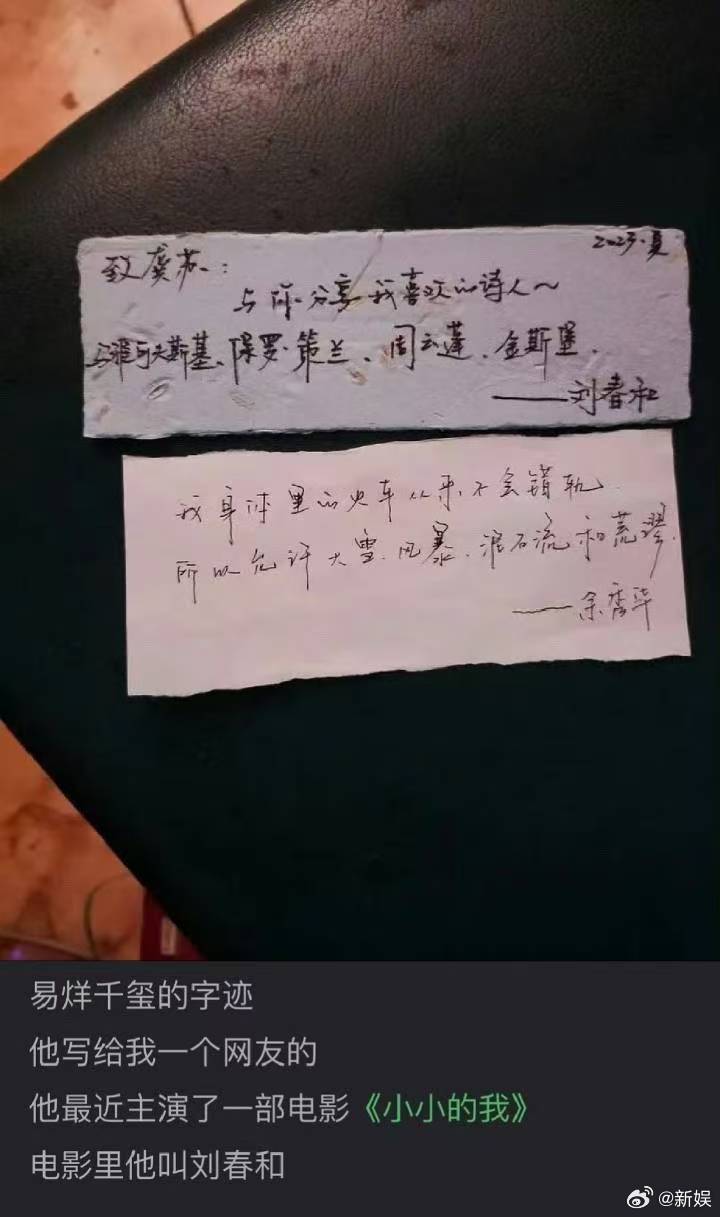 2023.夏
致龚苏：
与你分享我喜欢的诗人～
马雅可夫斯基、保罗·策兰、周云蓬、金斯堡.
——刘春和
我身体里的火车从来不会错轨
所以允许大雪、风暴、泥石流和荒谬.
——余秀华
易烊千玺的字迹
他写给我一个网友的
他最近主演了一部电影《小小的我》
电影里他叫刘春和
@新娱